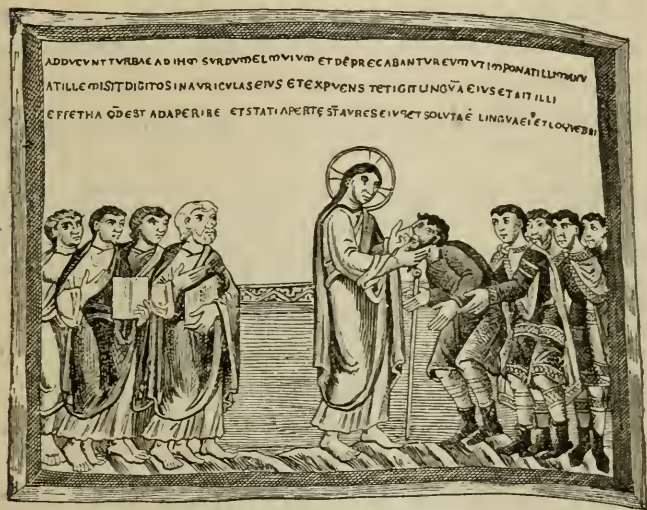 ADDVCVNT TVRBAE AD IHM SVRDVM EL MVIVM ET DEPRECABANTVR EVM VT IMPONAT ILLI
AT ILLE MISIT DIGITOS IN AVRICVLAS EIVS ET EXPVENS TETIGIT LINGVĀ EIVS ET AIT ILLI
EFFETHA QD̄ EST ADAPERIRE ET STATI APERTE SŤ AVRES EIVS ET SOLVTA Ē LINGVA EI ET LOQVEB